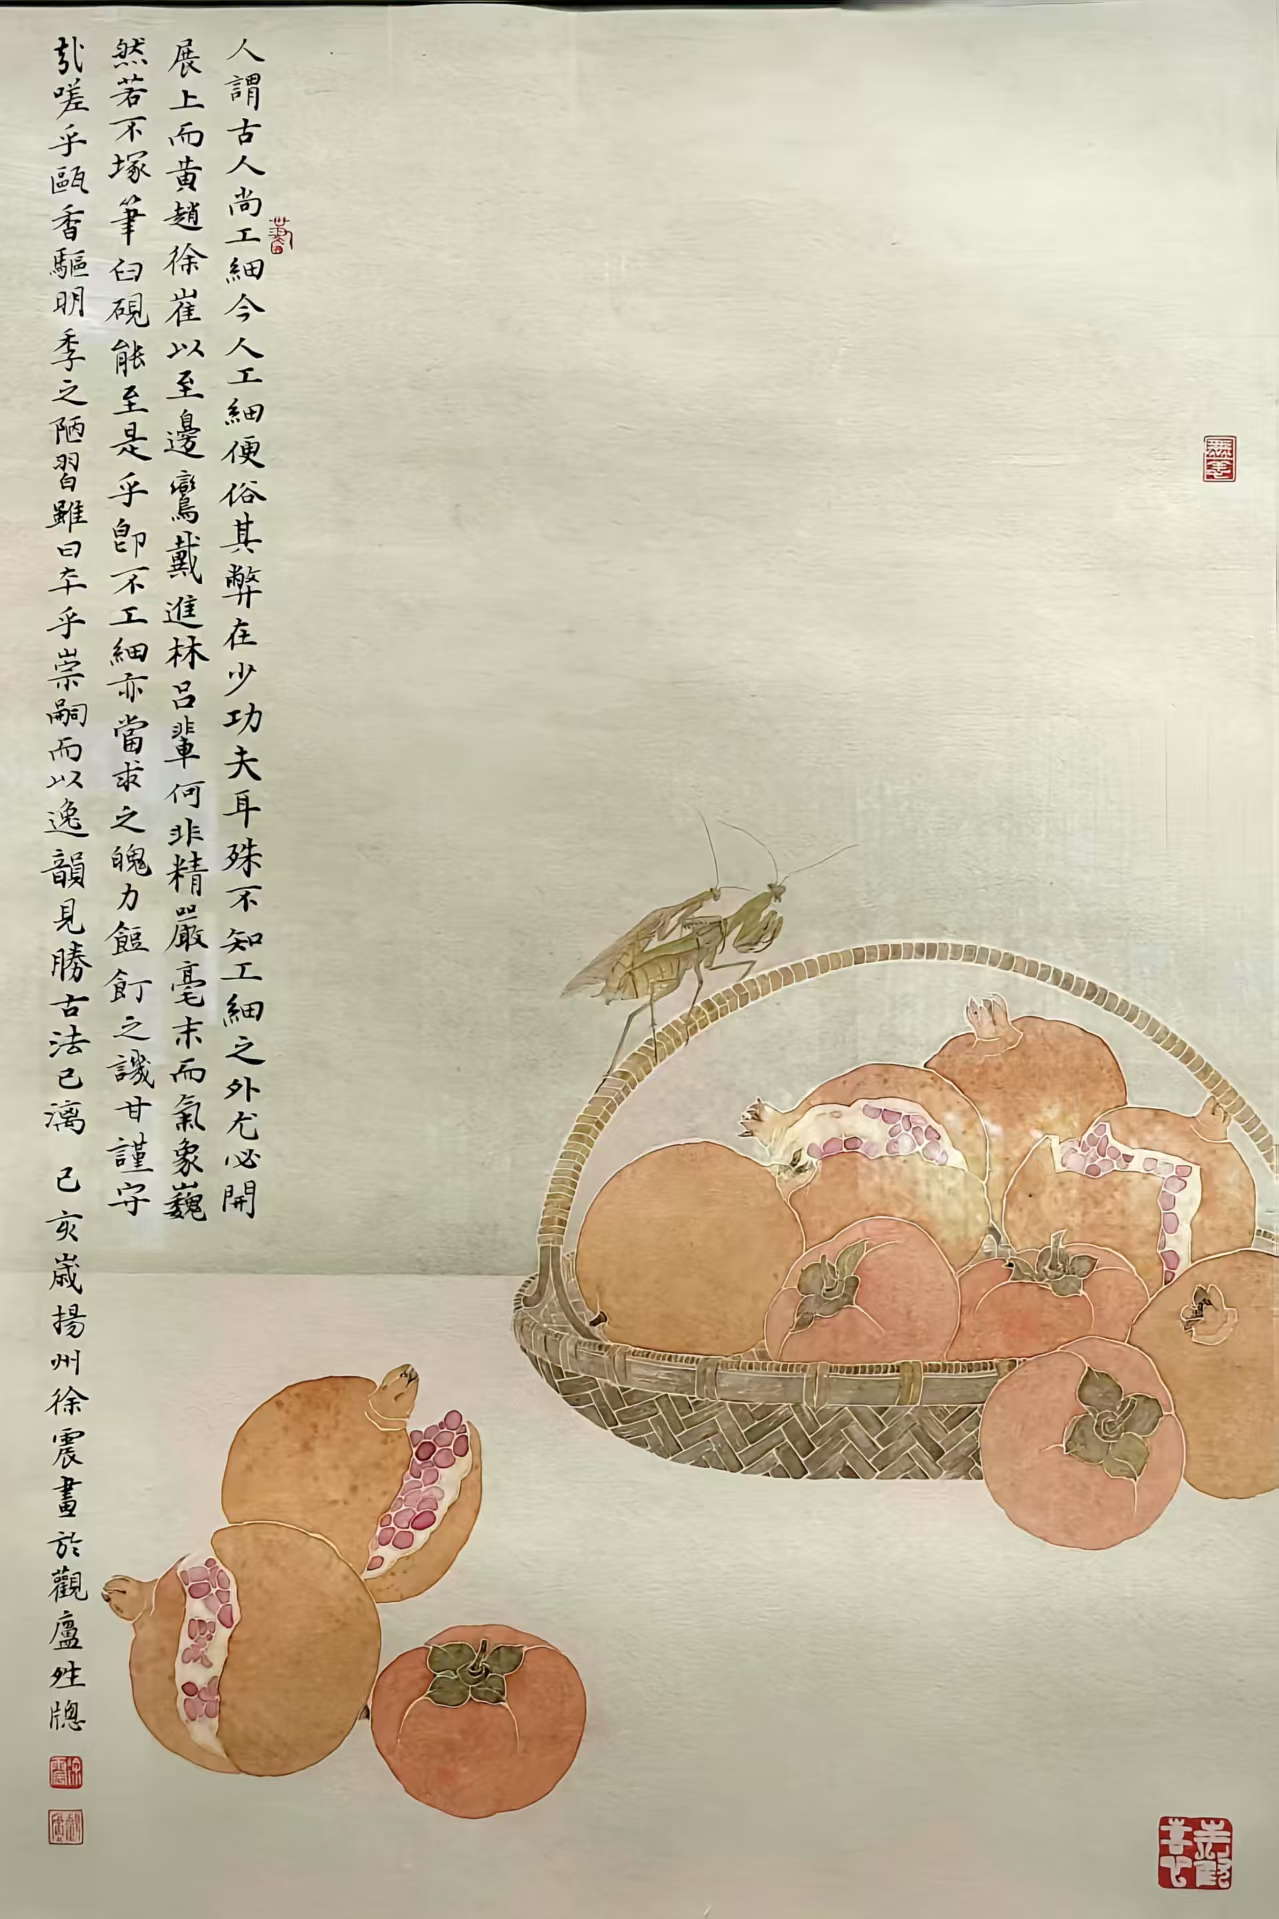 人謂古人尚工細今人工細便俗其弊在少功夫耳殊不知工細之外尤必開
展上而黃趙徐崔以至邊鸞戴進林呂輩何非精嚴毫末而氣象巍
然若不塚筆臼硯能至是乎卽不工細亦當求之魄力飣之譏甘謹守
哉嗟乎甌香驅明季之陋習雖曰本乎崇嗣而以逸韻見勝古法已漓 己亥歲揚州徐震畫於觀廬牕